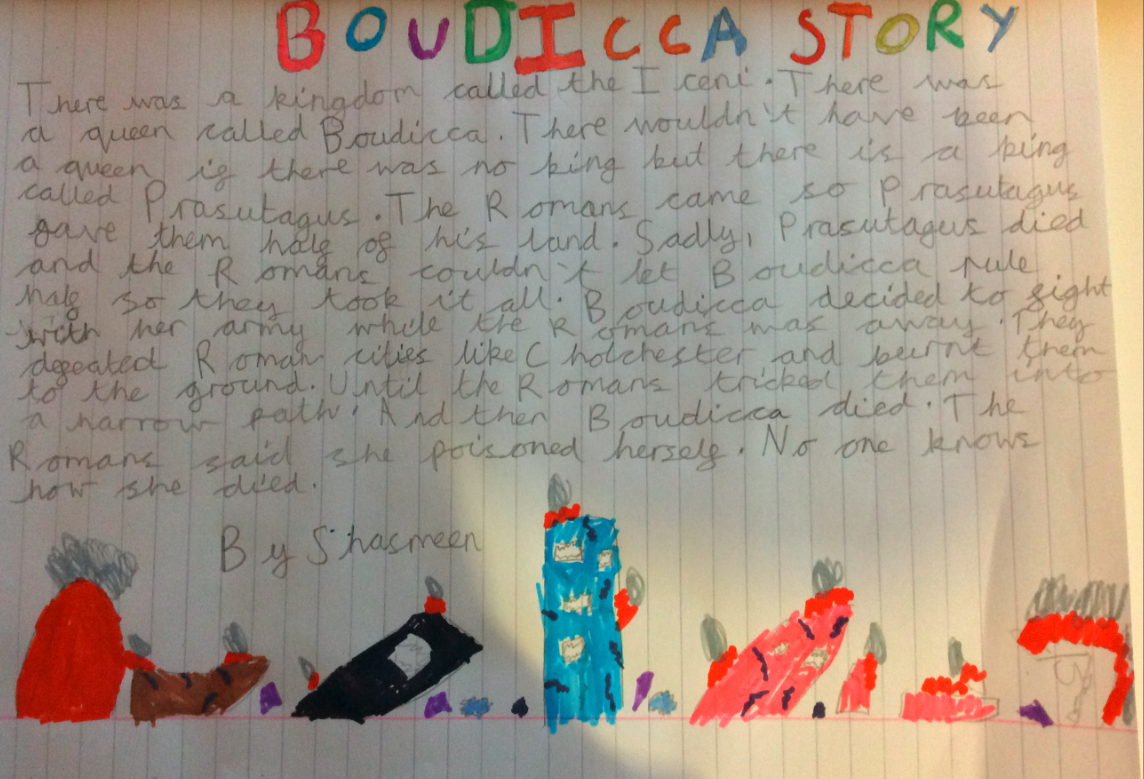 BOUDICCA STORY
There was a kingdom called the Iceni. There was
a queen called Boudicca. There wouldn't have been
a queen if there was no king but there is a king
called Prasutagus. The Romans came so Prasutagus
gave them half of his land. Sadly, Prasutagus died
and the Romans couldn't let Boudicca rule
half so they took it all. Boudicca decided to fight
with her army while the Romans was away. They
defeated Roman cities like Cholchester and burnt them
to the ground. Until the Romans tricked them into
a narrow path. And then Boudicca died. The
Romans said she poisoned herself. No one knows
how she died.
By Shasmeen